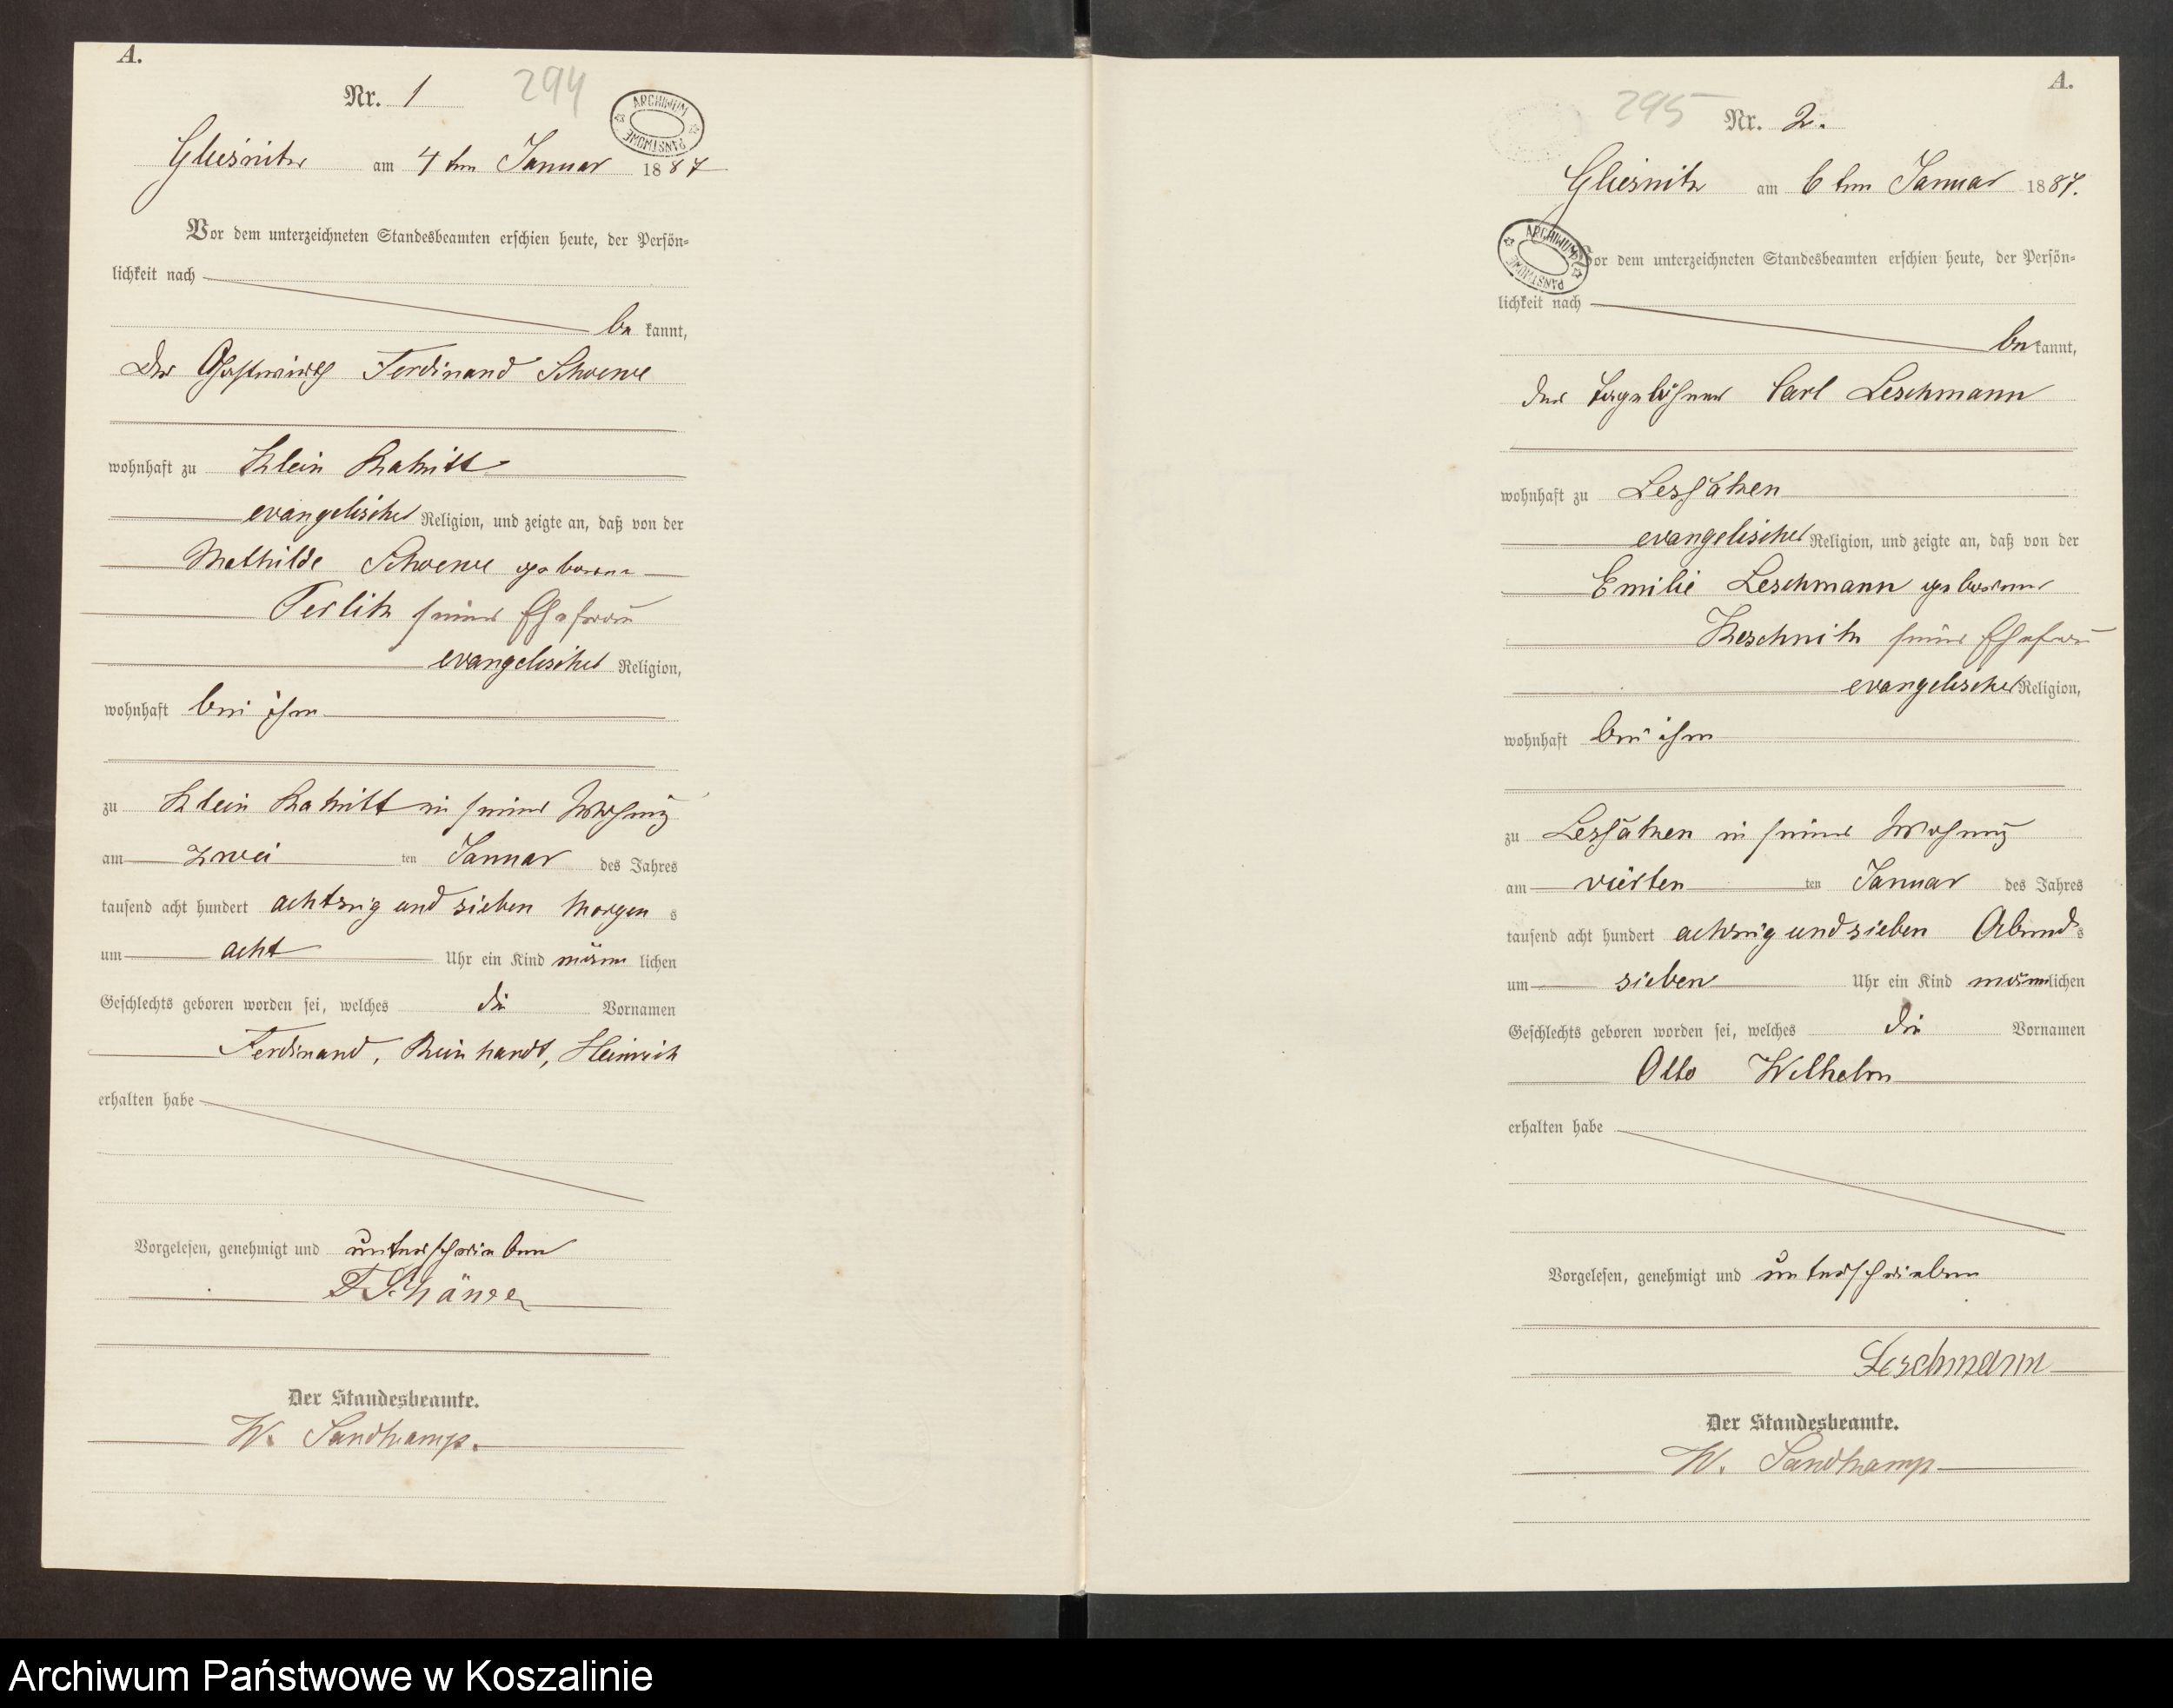 A.
Nr. 1
294
ARCHIWUM PAŃSTWOWE
Gliesnitz am 4 ten Januar 1887
Vor dem unterzeichneten Standesbeamten erschien heute, der Persön-
lichkeit nach
be kannt,
der Gastwirth Ferdinand Schoewe
wohnhaft zu Klein Rakitt
evangelischer Religion, und zeigte an, daß von der
Mathilde Schoewe geborene
Terlitz seiner Ehefrau
evangelischer Religion,
wohnhaft bei ihm
zu Klein Rakitt in seiner Wohnung
am zwei ten Januar des Jahres
tausend acht hundert achtzig und sieben Morgen s
um acht Uhr ein Kind männ lichen
Geschlechts geboren worden sei, welches die Vornamen
Ferdinand, Reinhardt, Heinrich
erhalten habe
Vorgelesen, genehmigt und unterschrieben
F
Der Standesbeamte.
W. Sandkamp.
A.
295
Nr. 2.
Gliesnitz am 6 ten Januar 1887.
ARCHIWUM PAŃSTWOWE
Vor dem unterzeichneten Standesbeamten erschien heute, der Persön-
lichkeit nach
be kannt,
der Tagelöhner Carl Leschmann
wohnhaft zu
evangelischer Religion, und zeigte an, daß von der
Emilie Leschmann geborene
Keschnitz seiner Ehefrau
evangelischer Religion,
wohnhaft bei ihm
zu in seiner Wohnung
am vierten ten Januar des Jahres
tausend acht hundert achzig und sieben Abend s
um sieben Uhr ein Kind männlichen
Geschlechts geboren worden sei, welches die Vornamen
Otto Wilhelm
erhalten habe
Vorgelesen, genehmigt und unterschrieben
Leschmann
Der Standesbeamte.
W. Sandkamp
Archiwum Państwowe w Koszalinie